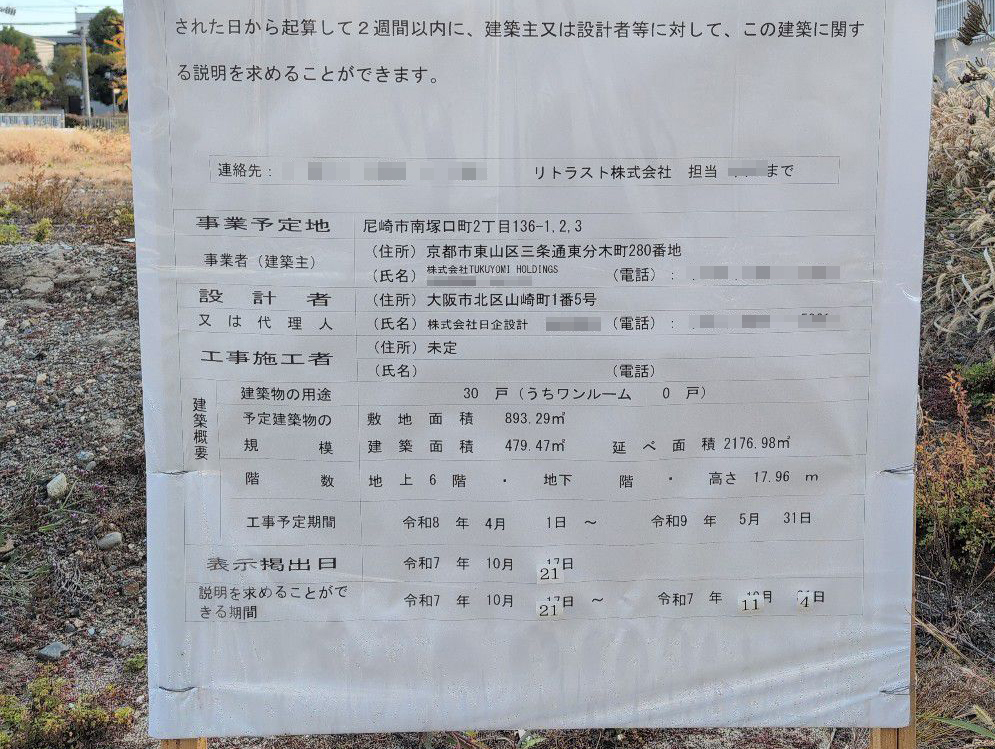 された日から起算して２週間以内に、建築主又は設計者等に対して、この建築に関す
る説明を求めることができます。
連絡先： リトラスト株式会社 担当 まで
事業予定地 尼崎市南塚口町2丁目136-1,2,3
事業者（建築主） （住所）京都市東山区三条通東分木町280番地
（氏名）株式会社TUKUYOMI HOLDINGS （電話）：
設計者 （住所）大阪市北区山崎町1番5号
又は代理人 （氏名）株式会社日企設計 （電話）：
工事施工者 （住所）未定
（氏名） （電話）
建築概要
建築物の用途 30 戸（うちワンルーム 0 戸）
予定建築物の 敷地面積 893.29㎡
規模 建築面積 479.47㎡ 延べ面積 2176.98㎡
階数 地上 6 階 ・ 地下 階 ・ 高さ 17.96 m
工事予定期間 令和8 年 4月 1日 ～ 令和9 年 5月 31日
表示掲出日 令和7 年 10月 21日
説明を求めることがで
きる期間 令和7 年 10月 21日 ～ 令和7 年 11月 4日